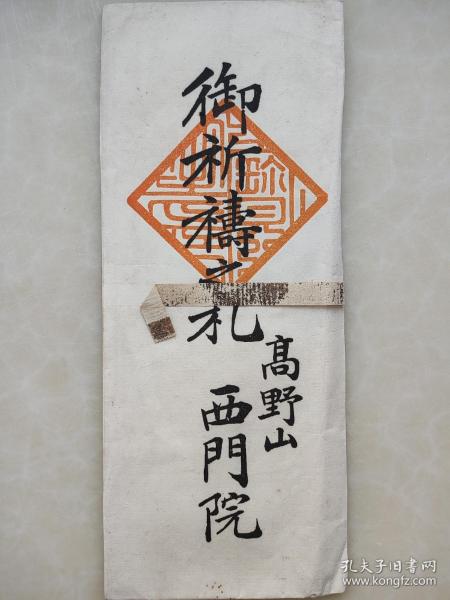 御祈禱之札
高野山
西門院
孔夫子旧书网
www.kongfz.com